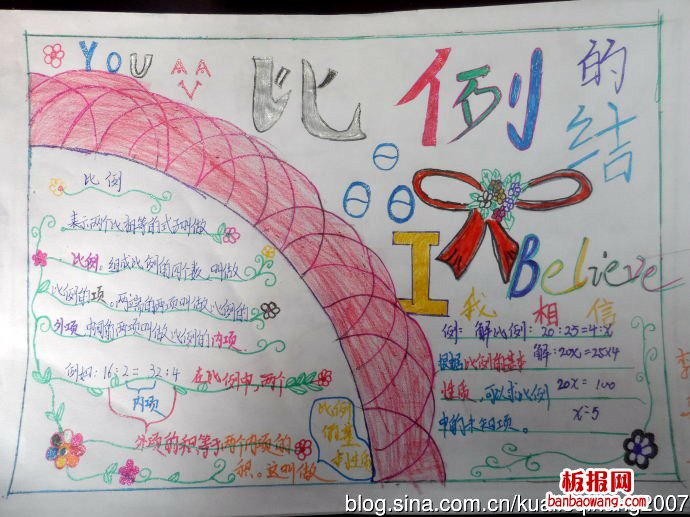 YOU
比例的结
I Believe
我相信
比例
表示两个比相等的式子叫做
比例。组成比例的四个数,叫做
比例的项。两端的两项叫做比例的
外项,中间的两项叫做比例的内项
例如:16:2=32:4
在比例中,两个
内项
外项的积等于两个内项的
积。这叫做
比例
的基
本性质
例:解比例:20:25=4:x
解:20x=25×4
20x=100
x=5
根据比例的基本
性质,可以求比例
中的未知项。
板报网
banbaowang.com